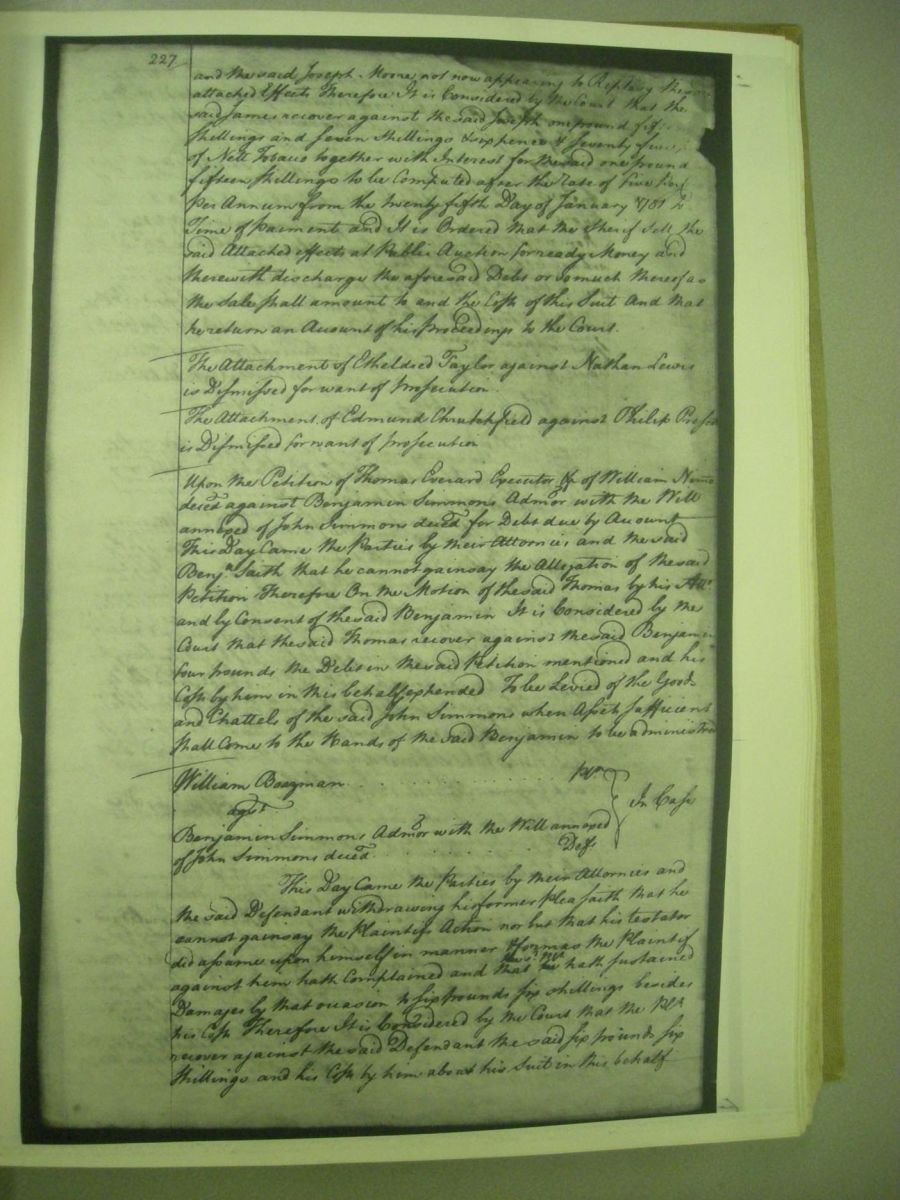 227
and the said Joseph Moore not now appearing to Replevy the
attached Effects Therefore It is Considered by the Court that the
said James recover against the said Joseph one pound fif
shillings and Seven Shillings & sixpence & Seventy five
of Nett Tobacco together with Interest for the said one pound
fifteen shillings to be Computed after the Rate of five
per Annum from the twenty fifth Day of January 1781 to
Time of paiment and It is Ordered that the Sherif Sell the
said Attached effects at Public Auction for ready Money and
therewith discharge the aforesaid Debt or so much thereof as
the Sale shall amount to and the Costs of this Suit And that
he return an Account of his proceedings to the Court.
The Attachment of Etheldred Taylor against Nathan Lewis
is Dismissed for want of prosecution.
The Attachment of Edmund Chrutchfield against Philip
is Dismissed for want of prosecution
Upon the Petition of Thomas Everard Executor &c of William Nimmo
deced against Benjamin Simmons Admor with the Will
annexed of John Simmons deced for Debt due by Account
This Day Came the Parties by their Attornies and the said
Benja Saith that he cannot gainsay the Allegation of the said
Petition Therefore On the Motion of the said Thomas by his Atto
and by Consent of the said Benjamin It is Considered by the
Court that the said Thomas recover against the said Benjamin
four pounds the Debt in the said Petition mentioned and his
Costs by him in this behalf expended To be Levied of the Goods
and Chattels of the said John Simmons when Assets sufficient
shall Come to the Hands of the said Benjamin to be administred
William Boazman . . . . . . . . . . Plt
agst In Case
Benjamin Simmons Admor with the Will annexed
of John Simmons deced . . . . . . Deft
This Day Came the Parties by their Attornies and
the said Defendant withdrawing his former plea saith that he
cannot gainsay the Plaintifs Action nor but that his testator
did assume upon himself in manner & form as the Plaintif
against him hath Complained and that he hath sustained
Damages by that occasion to six pounds six shillings besides
his Costs Therefore It is Considered by the Court that the Plt
recover against the said Defendant the said six pounds six
shillings and his Costs by him about his Suit in this behalf